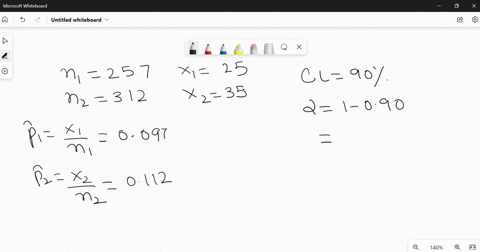 Microsoft Whiteboard
Untitled whiteboard
n₁ = 257 x₁ = 25
n₂ = 312 x₂ = 35
p̂₁ = x₁/n₁ = 0.097
p̂₂ = x₂/n₂ = 0.112
CL = 90%.
α = 1 - 0.90
=
140%